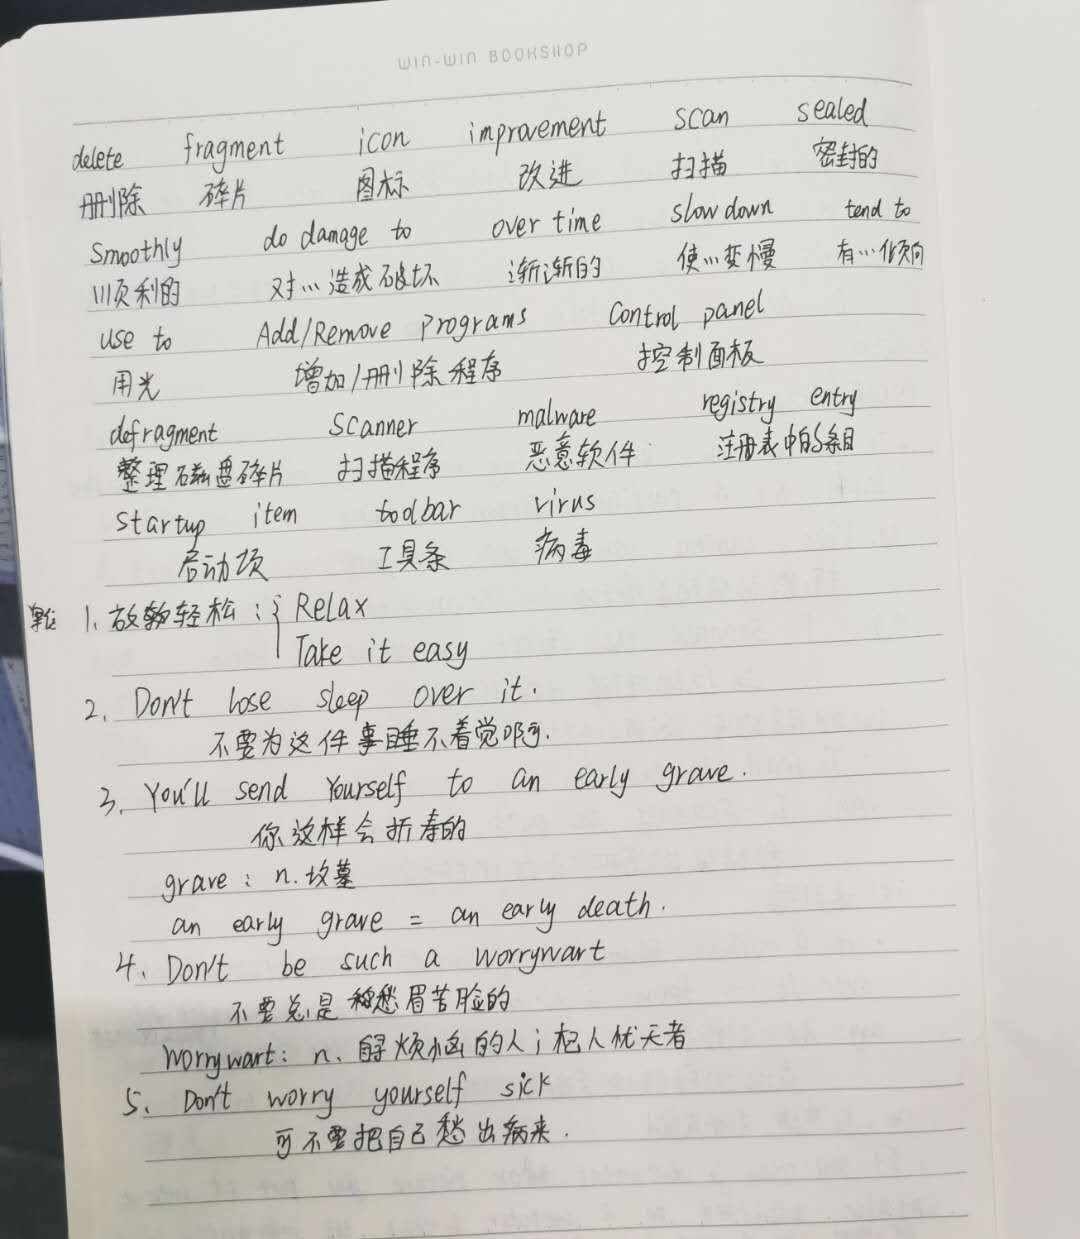 WIN-WIN BOOKSHOP
delete fragment icon improvement scan sealed
删除 碎片 图标 改进 扫描 密封的
smoothly do damage to over time slow down tend to
顺利的 对…造成破坏 渐渐的 使…变慢 有…倾向
use to Add/Remove Programs Control panel
用光 增加/删除程序 控制面板
defragment Scanner malware registry entry
整理磁盘碎片 扫描程序 恶意软件 注册表中的条目
startup item toolbar virus
启动项 工具条 病毒
1. 放轻松: Relax
Take it easy
2. Don't lose sleep over it.
不要为这件事睡不着觉啊.
3. You'll send Yourself to an early grave.
你这样会折寿的
grave: n. 坟墓
an early grave = an early death.
4. Don't be such a worrywart
不要总是愁眉苦脸的
Worrywart: n. 自寻烦恼的人;杞人忧天者
5. Don't worry yourself sick
可不要把自己愁出病来.